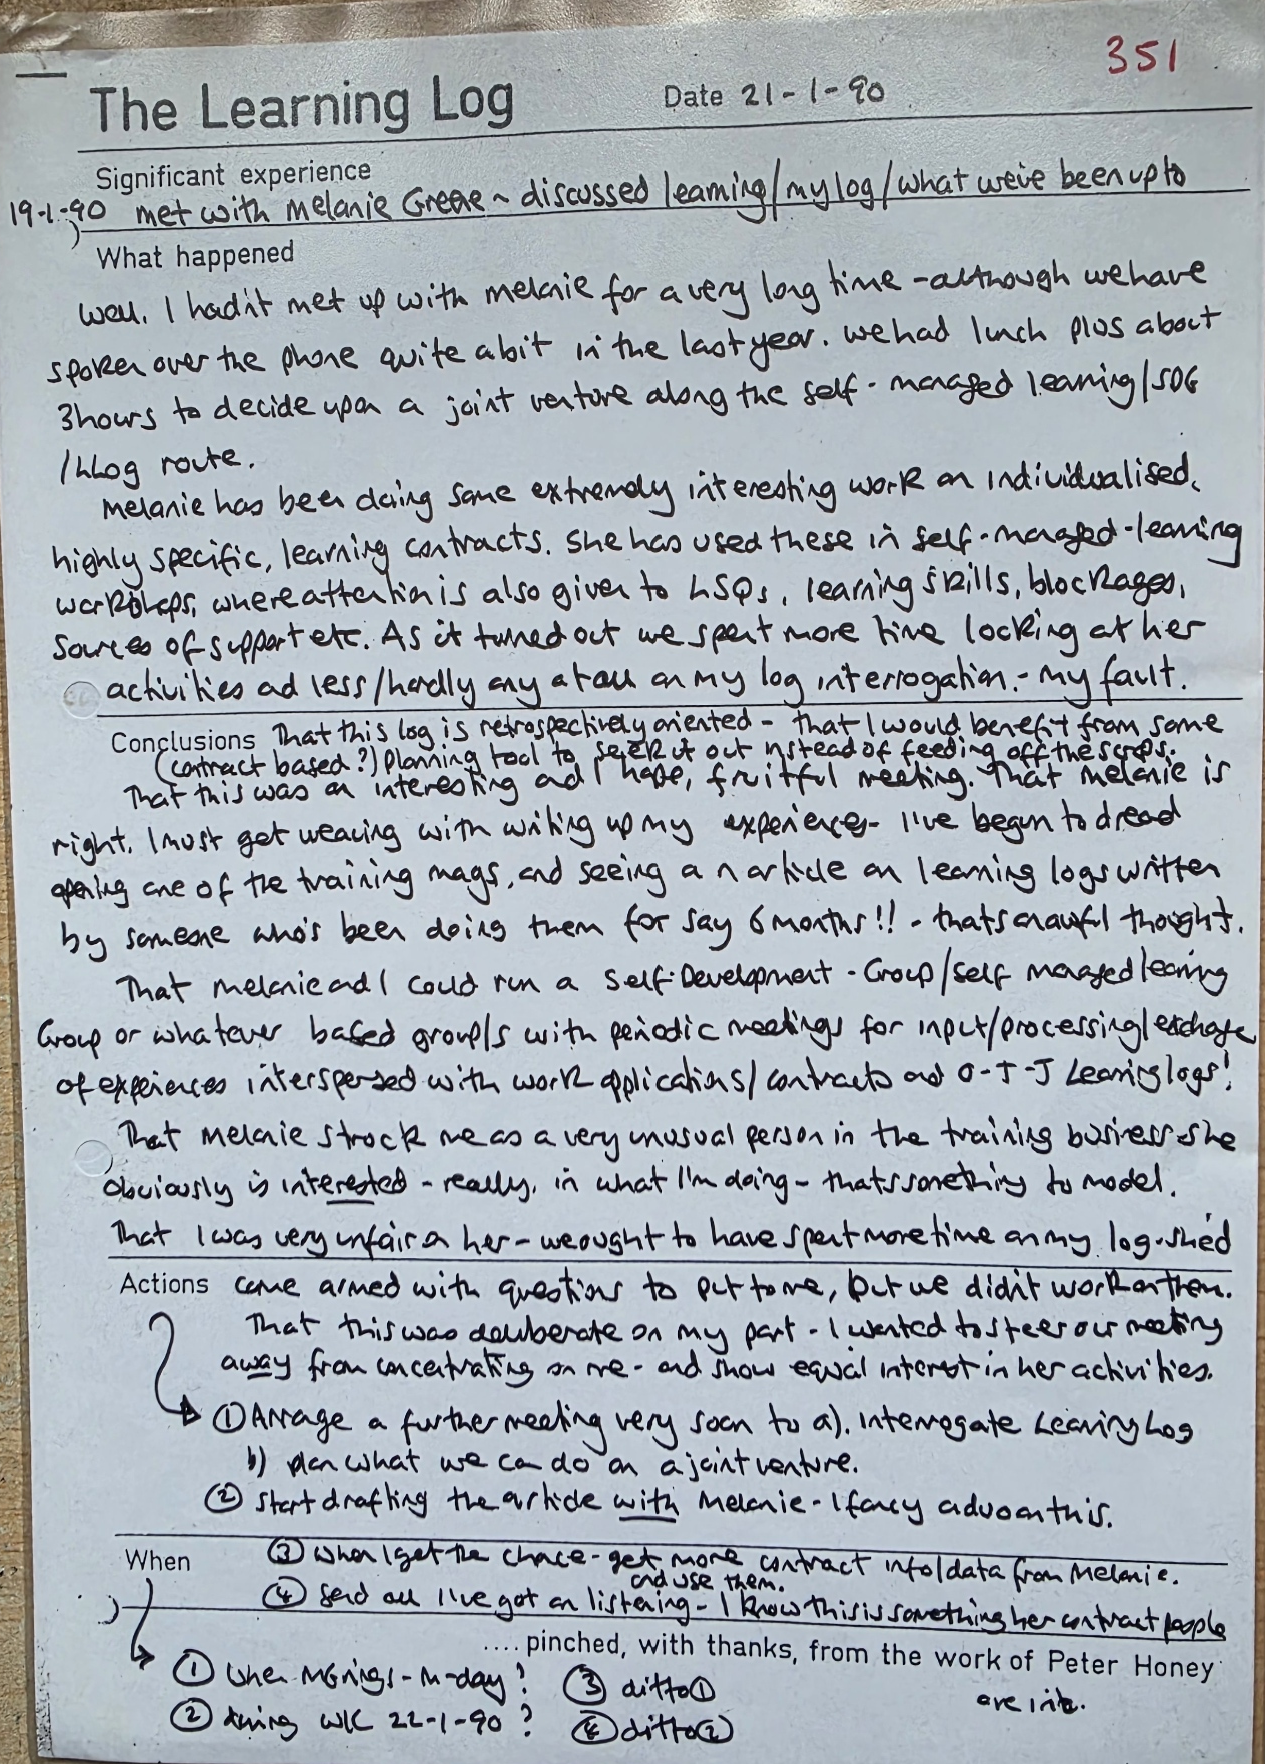 351
The Learning Log Date 21-1-90
Significant experience
19-1-90 met with Melanie Greene ~ discussed learning/my log/what we've been up to
What happened
Well. I hadn't met up with Melanie for a very long time - although we have
spoken over the phone quite a bit in the last year. We had lunch plus about
3 hours to decide upon a joint venture along the self-managed learning/SDG
/LLog route.
Melanie has been doing some extremely interesting work on individualised,
highly specific, learning contracts. She has used these in self-managed-learning
workshops, where attention is also given to LSQs, learning skills, blockages,
sources of support etc. As it turned out we spent more time looking at her
activities and less/hardly any at all on my log interrogation. - my fault.
Conclusions That this log is retrospectively oriented - that I would benefit from some
(contract based?) planning tool to seek it out instead of feeding off the scraps.
That this was an interesting and I hope, fruitful meeting. That Melanie is
right. I must get weaving with writing up my experiences - I've begun to dread
opening one of the training mags, and seeing an article on learning logs written
by someone who's been doing them for say 6 months!! - thats an awful thought.
That Melanie and I could run a Self-Development-Group/self managed learning
Group or whatever based group/s with periodic meetings for input/processing/exchange
of experiences interspersed with work applications/contracts and O-T-J Learning logs!
That Melanie struck me as a very unusual person in the training business - she
obviously is interested - really, in what I'm doing - thats something to model.
That I was very unfair on her - we ought to have spent more time on my log - she'd
Actions come armed with questions to put to me, but we didn't work on them.
That this was deliberate on my part - I wanted to steer our meeting
away from concentrating on me - and show equal interest in her activities.
① Arrange a further meeting very soon to a). interrogate Learning Log
b) plan what we can do on a joint venture.
② Start drafting the article with Melanie - I fancy a duo on this.
When ③ When I get the chance - get more contract info/data from Melanie.
and use them.
④ Send all I've got on listening - I know this is something her contract people
.... pinched, with thanks, from the work of Peter Honey
are into.
① when MG rings - M-day? ③ ditto ①
② during W/C 22-1-90? ④ ditto ②